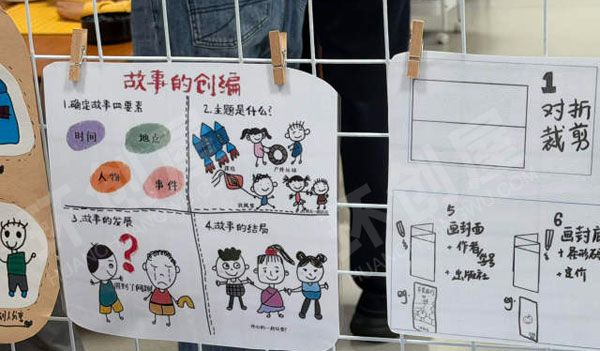 故事的创编
1.确定故事四要素
时间
地点
人物
事件
2.主题是什么?
3.故事的发展
?
4.故事的结局
1
对折
裁剪
5
画封面
+作者
+出版社
6
画封底
+条形码
+定价
eg
eg